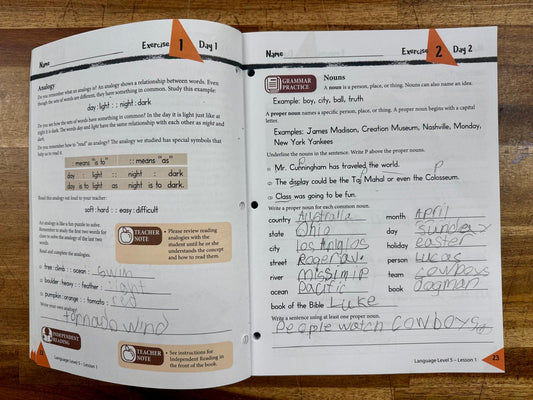 Exercise 1 Day 1
Name
Analogy
Do you remember what an analogy is? An analogy shows a relationship between words. Even
though the sets of words are different, they have something in common. Study this example:
day : light : : night : dark
Do you see how the sets of words have something in common? In the day it is light just like at
night it is dark. The words day and light have the same relationship with each other as night and
dark.
Do you remember how to "read" an analogy? The analogy we studied has special symbols that
help us to read it.
: means "is to" : : means "as"
day : light : : night : dark
day is to light as night is to dark.
Read this analogy out loud to your teacher:
soft : hard : : easy : difficult
An analogy is like a fun puzzle to solve.
Remember to study the first two words for
clues to solve the analogy of the last two
words.
Read and complete the analogies.
TEACHER NOTE
• Please review reading
analogies with the
student until he or she
understands the concept
and how to read them.
tree : climb : : ocean : swim
boulder : heavy : : feather : light
pumpkin : orange : : tomato : red
Write your own analogy!
tornado wind
INDEPENDENT READING
TEACHER NOTE
• See instructions for
Independent Reading in
the front of the book.
Language Level 5 – Lesson 1
Exercise 2 Day 2
Name
GRAMMAR PRACTICE
Nouns
A noun is a person, place, or thing. Nouns can also name an idea.
Example: boy, city, ball, truth
A proper noun names a specific person, place, or thing. A proper noun begins with a capital
letter.
Examples: James Madison, Creation Museum, Nashville, Monday,
New York Yankees
Underline the nouns in the sentence. Write P above the proper nouns.
P
Mr. Cunningham has traveled the world.
P
The display could be the Taj Mahal or even the Colosseum.
Class was going to be fun.
Write a proper noun for each common noun.
country Australia month April
state Ohio day Sunday
city los Anglas holiday easter
street person Lucas
river missimip team cowboys
ocean Pacific book dogman
book of the Bible Luke
Write a sentence using at least one proper noun.
People watch cowboys
Language Level 5 – Lesson 1
23